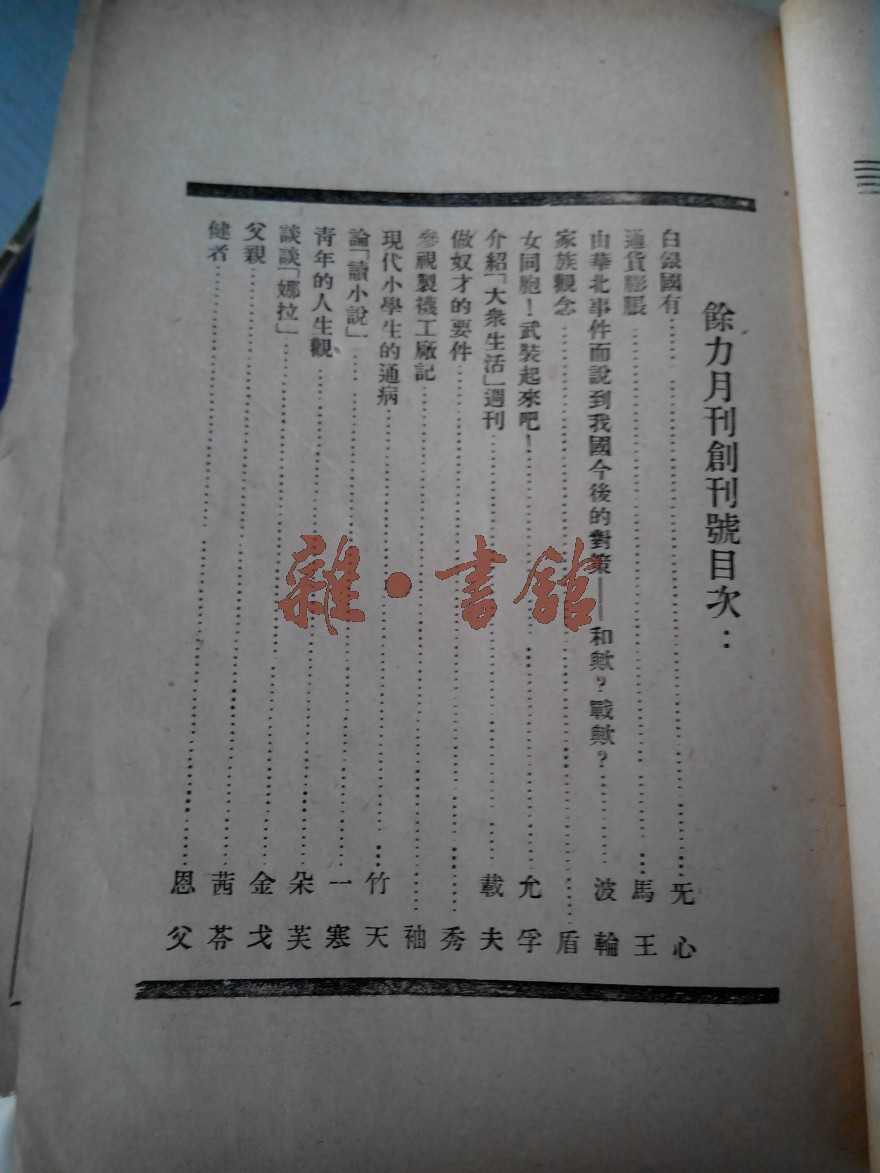 餘力月刊創刊號目次：
白銀國有……旡心
通貨膨脹……馬王
由華北事件而說到我國今後的對策——和歟？戰歟？……波輪
家族觀念……盾
女同胞！武裝起來吧！……允孚
介紹「大衆生活」週刊……載夫
做奴才的要件……秀
參視製襪工廠記……袖
現代小學生的通病……竹天
論「讀小說」……一寒
青年的人生觀……朵芙
談談「娜拉」……金戈
父親……茜苓
健者……恩父
雜·書館